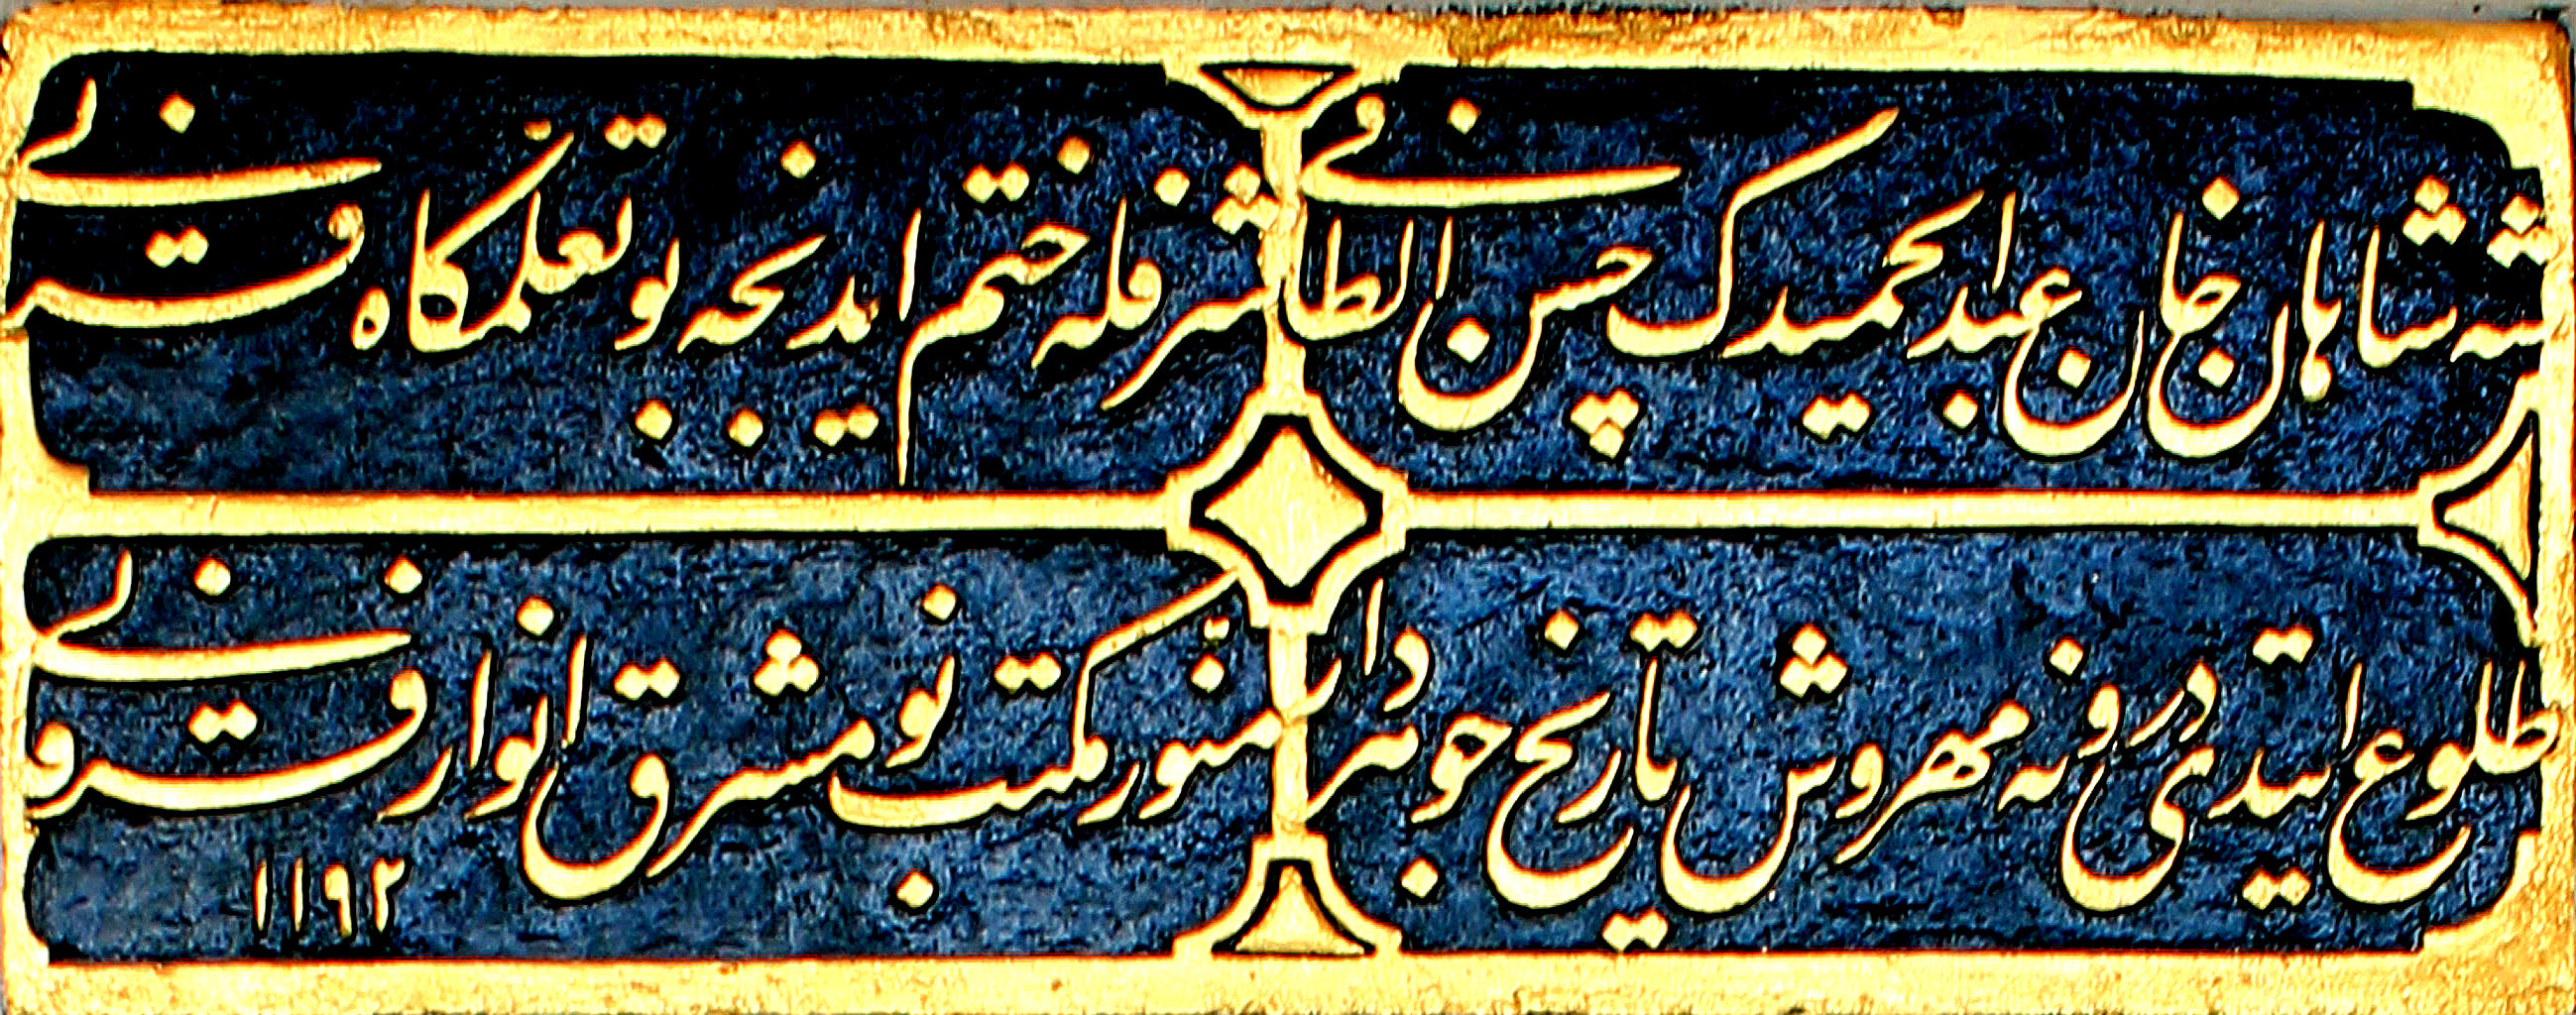 شه شاهان خان عبدالحمیدك حسن الطافی
شرفله ختم ایدنجه بو تعلّمكاه قرانی
طلوع ایتدی درونه مهروش تاریخ جوهردار
منور مكتب نو مشرق انوار فرقانی
١١٩٢